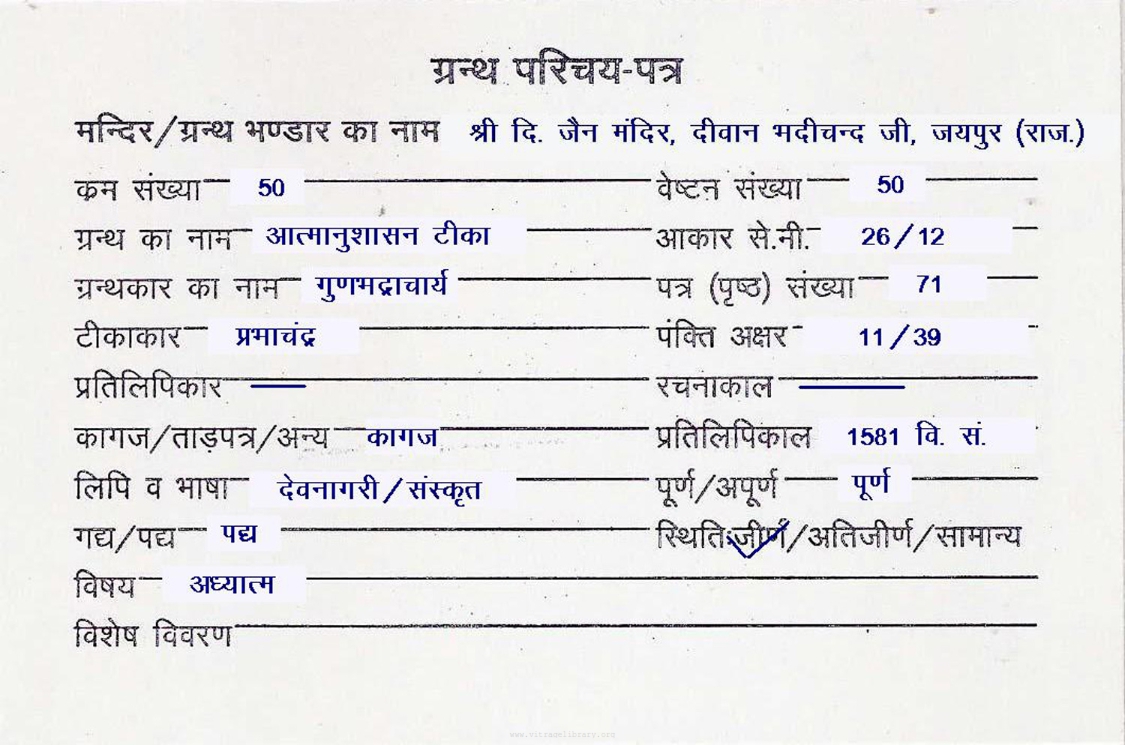 ग्रन्थ परिचय-पत्र
मन्दिर/ग्रन्थ भण्डार का नाम श्री दि. जैन मंदिर, दीवान भदीचन्द जी, जयपुर (राज.)
क्रम संख्या 50 वेष्टन संख्या 50
ग्रन्थ का नाम आत्मानुशासन टीका आकार से.मी. 26/12
ग्रन्थकार का नाम गुणभद्राचार्य पत्र (पृष्ठ) संख्या 71
टीकाकार प्रभाचंद्र पंक्ति अक्षर 11/39
प्रतिलिपिकार — रचनाकाल —
कागज/ताड़पत्र/अन्य कागज प्रतिलिपिकाल 1581 वि. सं.
लिपि व भाषा देवनागरी/संस्कृत पूर्ण/अपूर्ण पूर्ण
गद्य/पद्य पद्य स्थिति:जीर्ण/अतिजीर्ण/सामान्य
विषय अध्यात्म
विशेष विवरण